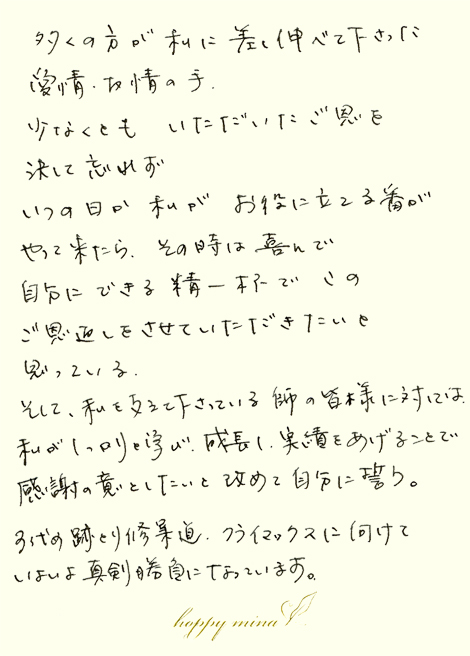 多くの方が私に差し伸べて下さった
愛情・友情の手.
少なくとも いただいたご恩を
決して忘れず
いつの日か 私が お役に立てる番が
やって来たら、その時は喜んで
自分にできる精一杯で この
ご恩返しをさせていただきたいと
思っている.
そして、私を支えて下さっている師の皆様に対しては、
私がしっかりと学び、成長し、実績をあげることで
感謝の意としたいと改めて自分に誓う。
3代目跡とり修業道、クライマックスに向けて
いよいよ真剣勝負になっています。
happy mina